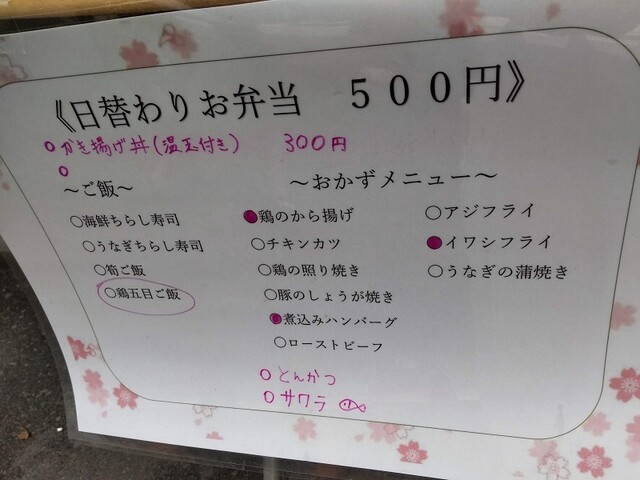 《日替わりお弁当　５００円》
○かき揚げ丼(温玉付き)　300円
○
～ご飯～
○海鮮ちらし寿司
○うなぎちらし寿司
○筍ご飯
○鶏五目ご飯
～おかずメニュー～
●鶏のから揚げ
○チキンカツ
○鶏の照り焼き
○豚のしょうが焼き
●煮込みハンバーグ
○ローストビーフ
○とんかつ
○サワラ
○アジフライ
●イワシフライ
○うなぎの蒲焼き